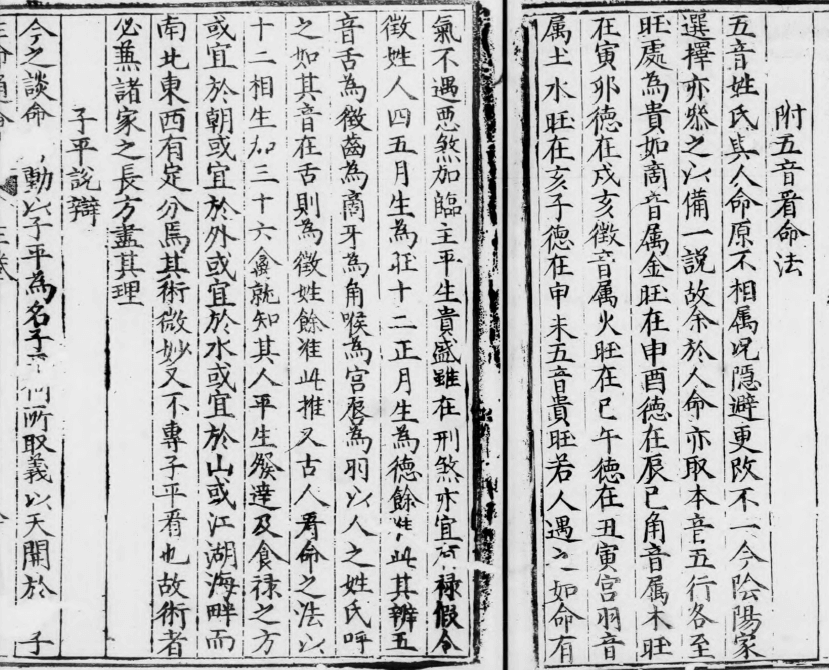 附五音看命法
五音姓氏其人命原不相属况隐避更改不一今陰陽家
選擇亦叅之以備一説故余於人命亦取本音五行各至
旺處為貴如商音属金旺在申酉德在辰巳角音属木旺
在寅卯德在戌亥徵音属火旺在巳午德在丑寅宫羽音
属土水旺在亥子德在申未五音貴旺若人遇之如命有
氣不遇悪煞加臨主平生貴盛雖在刑煞亦宜有禄假令
徵姓人四五月生為旺十二正月生為德餘准此其辨五
音舌為徵齒為商牙為角喉為宫唇為羽以人之姓氏呼
之如其音在舌則為徵姓餘准此推又古人看命之法以
十二相生加三十六禽就知其人平生發達及食禄之方
或宜於朝或宜於外或宜於水或宜於山或江湖海畔而
南北東西有定分焉其術微妙又不專子平看也故術者
必兼諸家之長方盡其理
子平説辯
今之談命動以子平為名子平何所取義以天開於子